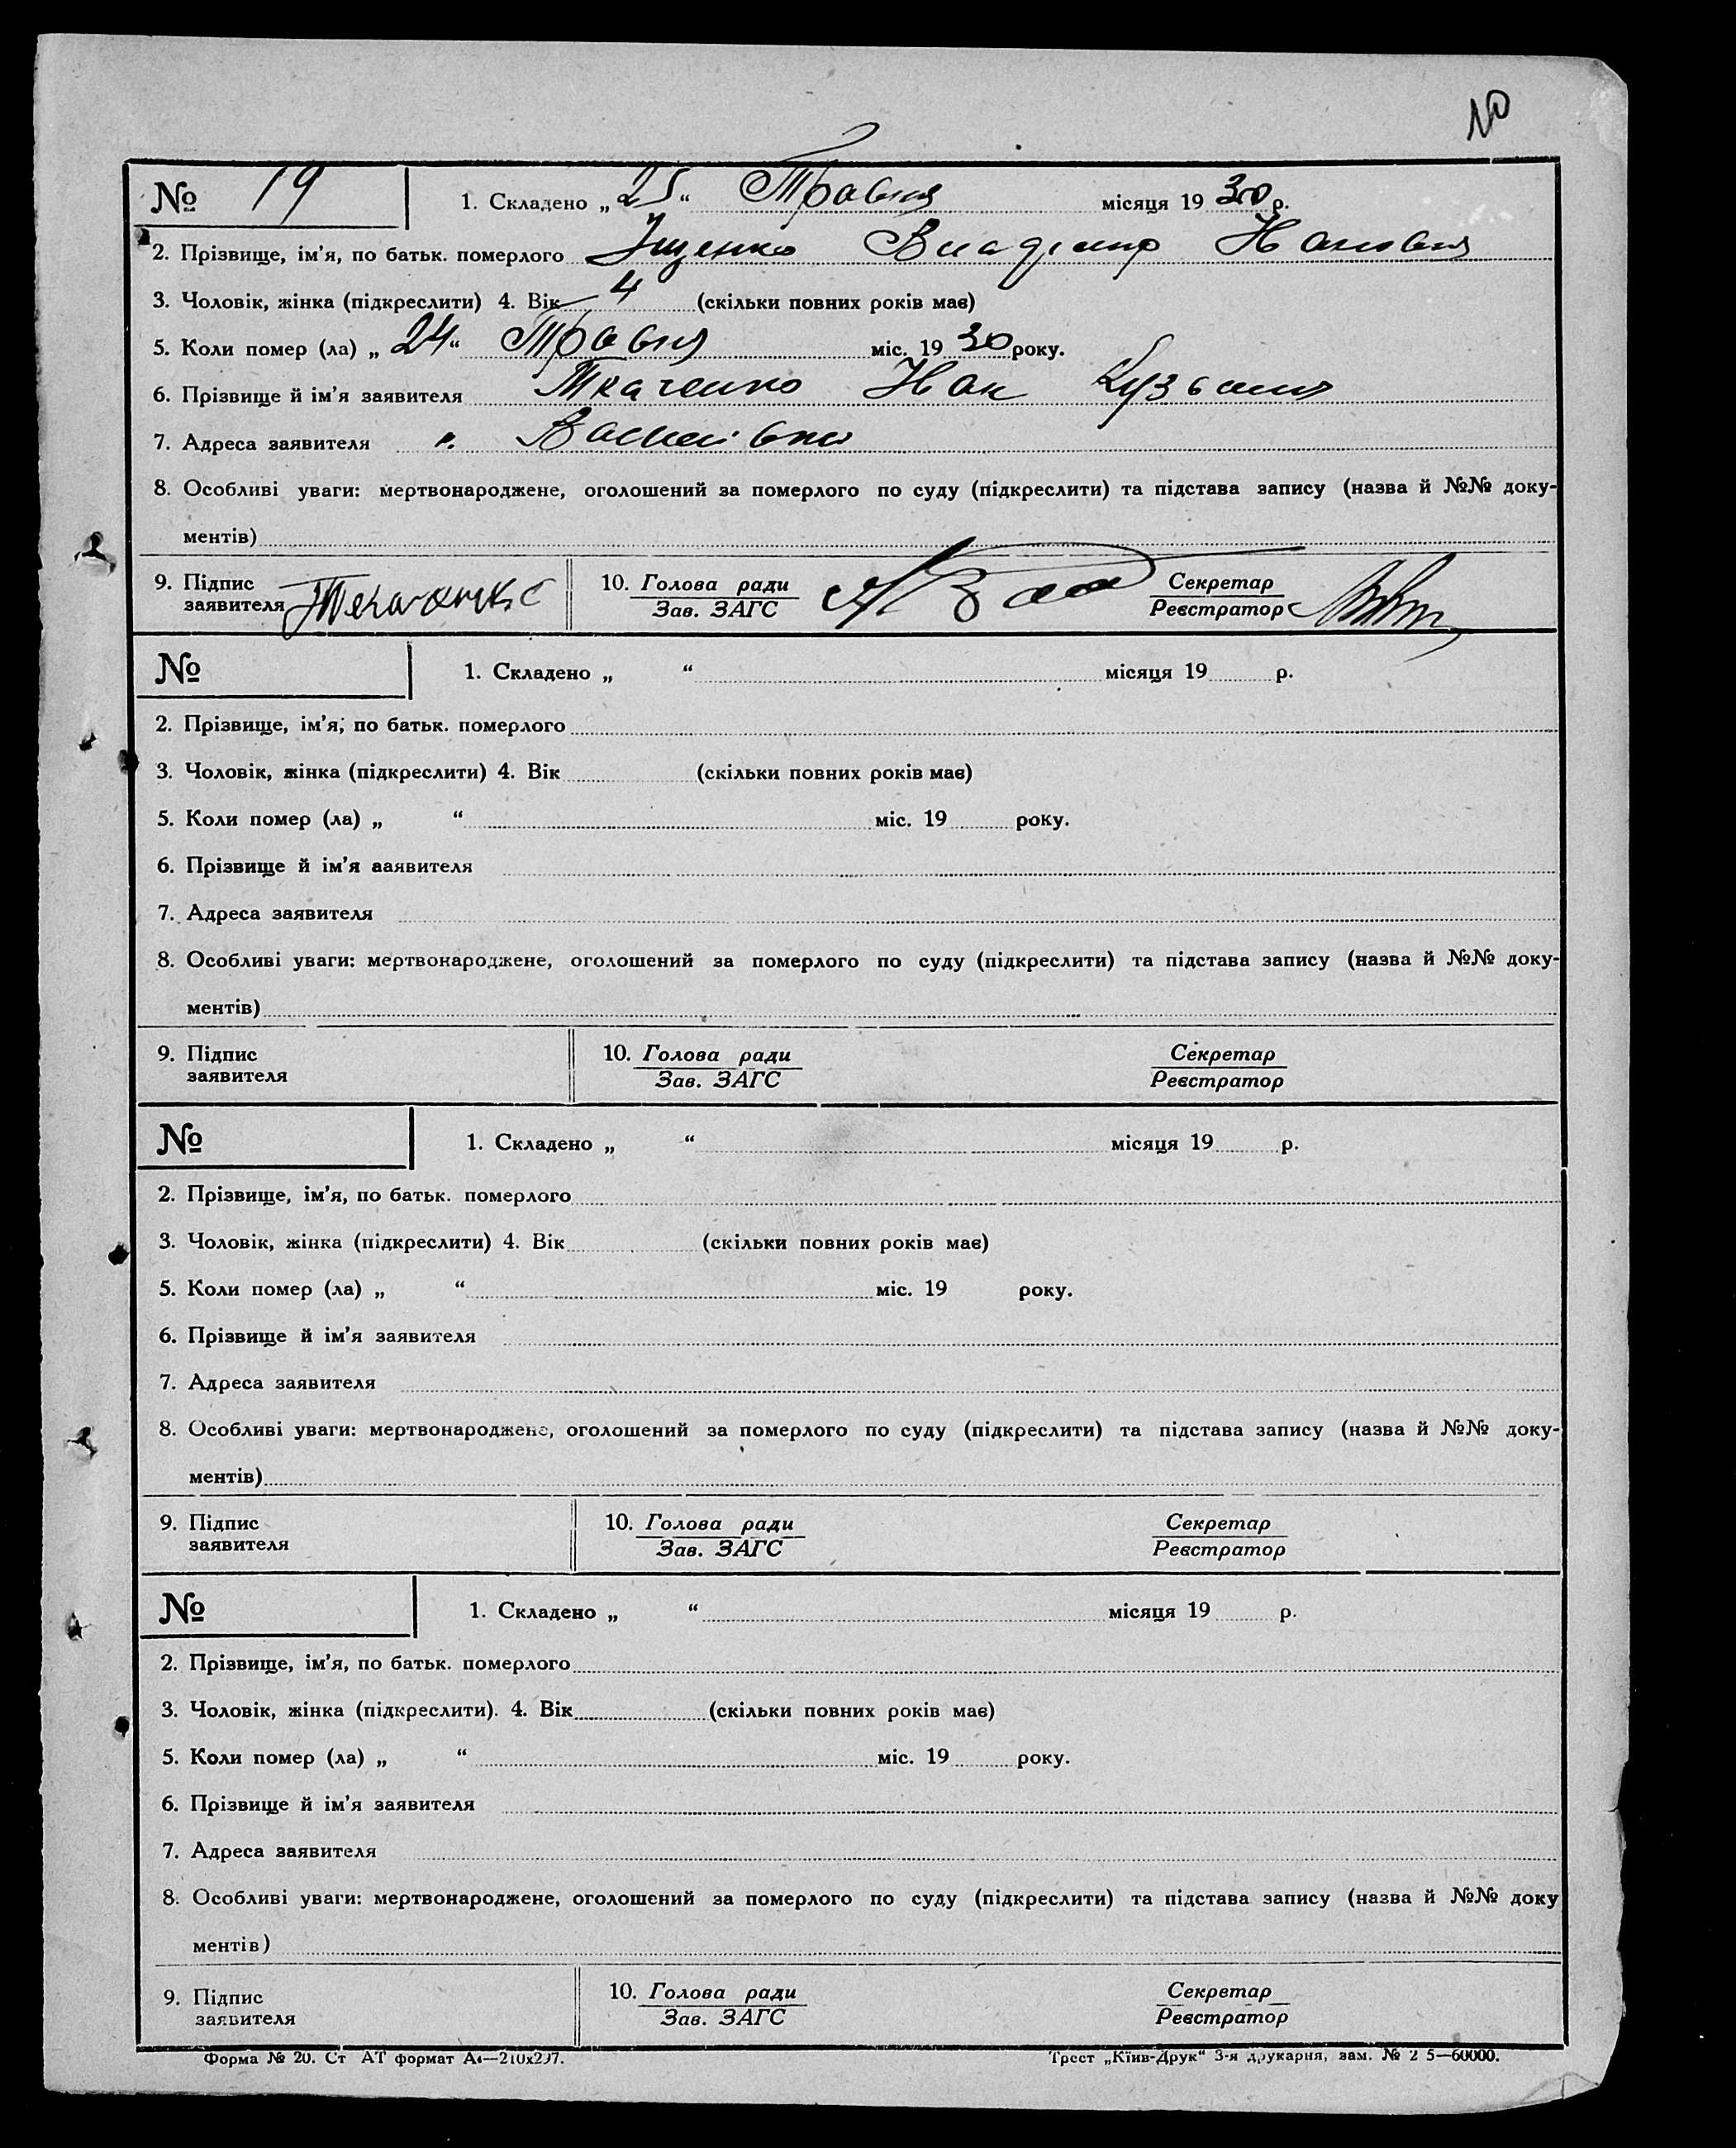 10
№ 19 1. Складено „ 25 “ Травня місяця 19 30 р.
2. Прізвище, ім'я, по батьк. померлого Іщенко Владімір
3. Чоловік, жінка (підкреслити) 4. Вік 4 (скільки повних років має)
5. Коли помер (ла) „ 24 “ Травня міс. 19 30 року.
6. Прізвище й ім'я заявителя Ткаченко
7. Адреса заявителя
8. Особливі уваги: мертвонароджене, оголошений за померлого по суду (підкреслити) та підстава запису (назва й №№ доку-
ментів)
9. Підпис 10. Голова ради Секретар
заявителя Зав. ЗАГС Реєстратор
№ 1. Складено „ “ місяця 19 р.
2. Прізвище, ім'я, по батьк. померлого
3. Чоловік, жінка (підкреслити) 4. Вік (скільки повних років має)
5. Коли помер (ла) „ “ міс. 19 року.
6. Прізвище й ім'я ааявителя
7. Адреса заявителя
8. Особливі уваги: мертвонароджене, оголошений за померлого по суду (підкреслити) та підстава запису (назва й №№ доку-
ментів)
9. Підпис 10. Голова ради Секретар
заявителя Зав. ЗАГС Реєстратор
№ 1. Складено „ “ місяця 19 р.
2. Прізвище, ім'я, по батьк. померлого
3. Чоловік, жінка (підкреслити) 4. Вік (скільки повних років має)
5. Коли помер (ла) „ “ міс. 19 року.
6. Прізвище й ім'я заявителя
7. Адреса заявителя
8. Особливі уваги: мертвонароджене, оголошений за померлого по суду (підкреслити) та підстава запису (назва й №№ доку-
ментів)
9. Підпис 10. Голова ради Секретар
заявителя Зав. ЗАГС Реєстратор
№ 1. Складено „ “ місяця 19 р.
2. Прізвище, ім'я, по батьк. померлого
3. Чоловік, жінка (підкреслити). 4. Вік (скільки повних років має)
5. Коли помер (ла) „ “ міс. 19 року.
6. Прізвище й ім'я заявителя
7. Адреса заявителя
8. Особливі уваги: мертвонароджене, оголошений за померлого по суду (підкреслити) та підстава запису (назва й №№ доку
ментів)
9. Підпис 10. Голова ради Секретар
заявителя Зав. ЗАГС Реєстратор
Форма № 20. Ст АТ формат А4—210х297. Трест „Київ-Друк“ 3-я друкарня, зам. № 2 5—60000.